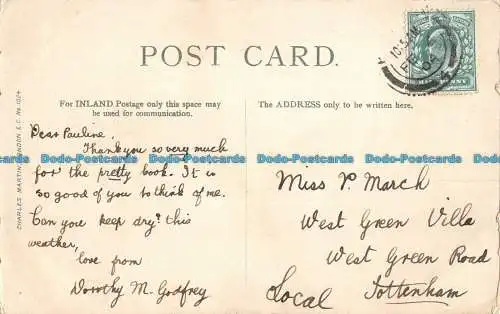 POST CARD.
For INLAND Postage only this space may
be used for communication.
The ADDRESS only to be written here.
CHARLES MARTIN, LONDON, E.C. No. 1024
Dear Pauline,
Thank you so very much
for the pretty book. It is
so good of you to think of me.
Can you keep dry? this
weather,
love from
Dorothy M. Godfrey
Miss P. March
West Green Villa
West Green Road
Local Tottenham
Dado-Postcards Dado-Postcards Dado-Postcards Dado-Postcards